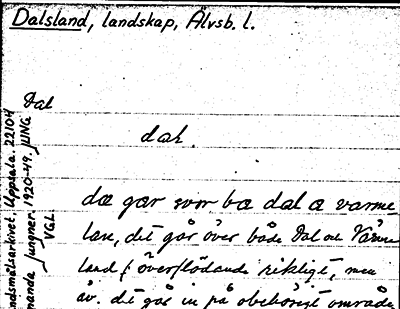 Dalsland, landskap, Älvsb. l.
Dal
dal.
dæ gar svor ba dal a varme
lan, det går över både Dal och Värm
land / överflödande rikligt, men
äv. det går in på obehörigt område
ndsmålsarkivet, Uppsala. 22104
manda Jungner. 1920-49. JUNG
VGL.